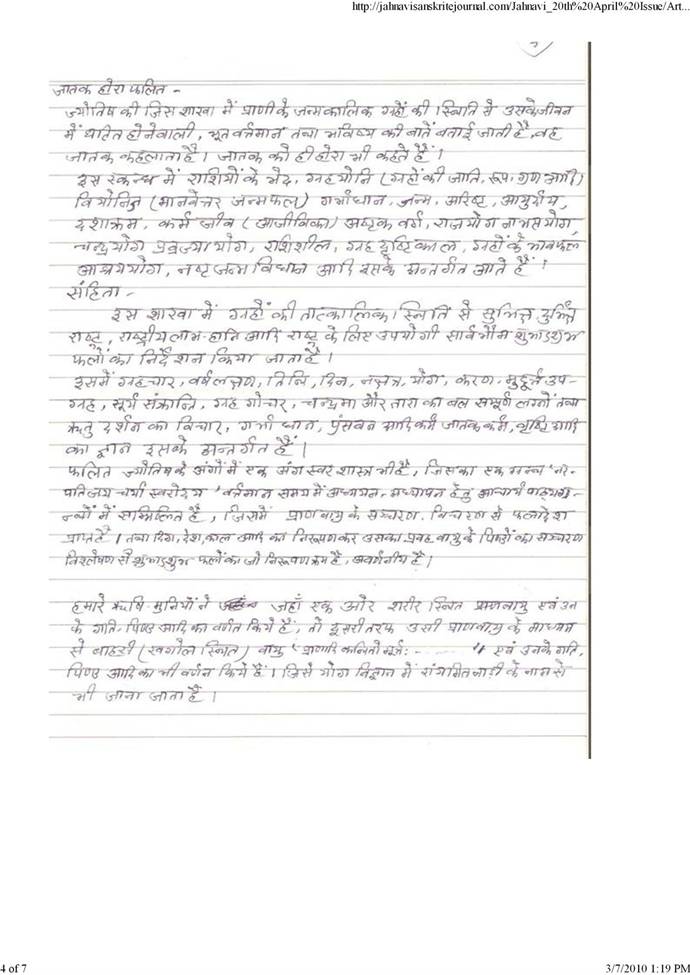 http://jahnavisanskritejournal.com/Jahnavi_20th%20April%20Issue/Art...
जातक होरा फलित -
ज्योतिष की जिस शाखा में प्राणी के जन्मकालिक ग्रहों की स्थिति से उसके जीवन
में घटित होनेवाली, भूत वर्तमान तथा भविष्य की बातें बताई जाती है, वह
जातक कहलाता है। जातक को ही होरा भी कहते हैं।
इस स्कन्ध में राशियों के भेद, ग्रहयोनि (ग्रहों की जाति, रूप, गुण आदि)
वियोनिज (मानवेत्तर जन्मफल) गर्भाधान, जन्म, अरिष्ट, आयुर्दाय,
दशाक्रम, कर्म जीव (आजीविका) अष्टक वर्ग, राजयोग नाभसयोग,
चन्द्रयोग प्रव्रज्यायोग, राशिशील, ग्रह दृष्टिकाल, ग्रहों के भावफल
आश्रययोग, नष्ट जन्म विधान आदि इसके अन्तर्गत आते हैं।
संहिता -
इस शाखा में ग्रहों की तात्कालिक स्थिति से सुभिक्ष, दुर्भिक्ष
राष्ट्र, राष्ट्रीय लाभ-हानि आदि राष्ट्र के लिए उपयोगी सार्वभौम शुभाऽशुभ
फलों का निर्देशन किया जाता है।
इसमें ग्रहचार, वर्षलक्षण, तिथि, दिन, नक्षत्र, योग, करण, मुहूर्त उप-
ग्रह, सूर्य संक्रान्ति, ग्रह गोचर, चन्द्रमा और तारा का बल सम्पूर्ण लग्नों तथा
ऋतु दर्शन का विचार, गर्भाधान, पुंसवन आदिकर्म जातक कर्म, वृष्टि आदि
का ज्ञान इसके अन्तर्गत हैं।
फलित ज्योतिष के अंगों में एक अंग स्वर शास्त्र भी है, जिसका एक ग्रन्थ 'नर-
पतिजय चर्या स्वरोदय' वर्तमान समय में अध्ययन, अध्यापन हेतु आचार्य पाठ्यग्र-
न्थों में सम्मिलित है, जिसमें प्राणवायु के सञ्चरण, विचरण से फलादेश
प्राप्त है। तथा दिग, देश, काल आदि का निरूपण कर उसका प्रवह वायु के पिण्डों का सञ्चरण
विश्लेषण से शुभाऽशुभ फलों का जो निरूपण क्रम है, अवर्णनीय है।
हमारे ऋषि-मुनियों ने जहाँ एक और शरीर स्थित प्राणवायु एवं उन
के गति, पिण्ड आदि का वर्णन किये हैं, तो दूसरी तरफ उसी प्राणवायु के माध्यम
से बाहरी (खगोल स्थित) वायु 'प्राणादि कथितो मूर्त्त: - ..... ।।' एवं उनके गति,
पिण्ड आदि का भी वर्णन किये हैं। जिसे योग विज्ञान में नाड़ी के नाम से
भी जाना जाता है।
4 of 7
3/7/2010 1:19 PM